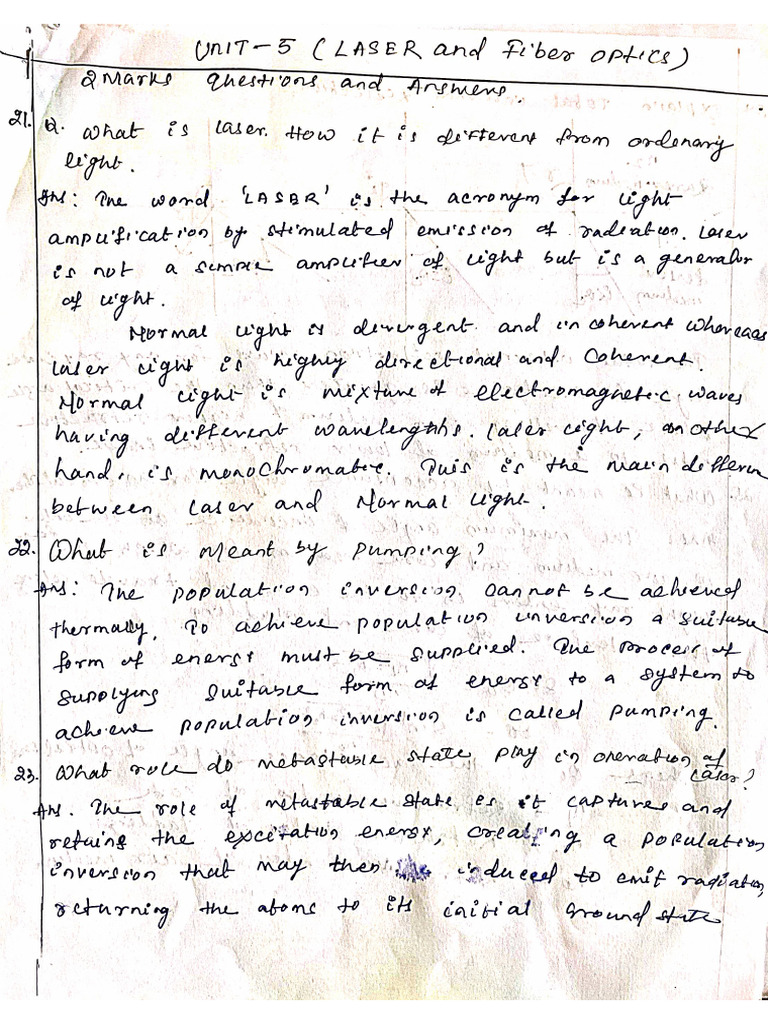 UNIT-5 (LASER and Fiber optics)
2 Marks Questions and Answers.
21. Q. What is laser. How it is different from ordenary
light.
Ans: The word 'LASER' is the acronym for light
amplification by stimulated emission of radiation. Laser
is not a simple amplifier of light but is a generator
of light.
Normal light is divergent and incoherent whereas
laser light is highly directional and Coherent.
Normal light is mixture of electromagnetic waves
having different wavelengths. laser light, on other
hand, is monochromatic. This is the main differen
between laser and Normal light.
22. What is meant by pumping?
Ans: The population inversion cannot be achieved
thermally. To achieve population inversion a suitable
form of energy must be supplied. The process of
supplying suitable form of energy to a system to
achieve population inversion is called pumping.
23. What role do metastable state play in operation of
laser?
Ans. The role of metastable state is it captures and
retains the excitation energy, creating a population
inversion that may then induced to emit radiation,
returning the atoms to its initial ground state